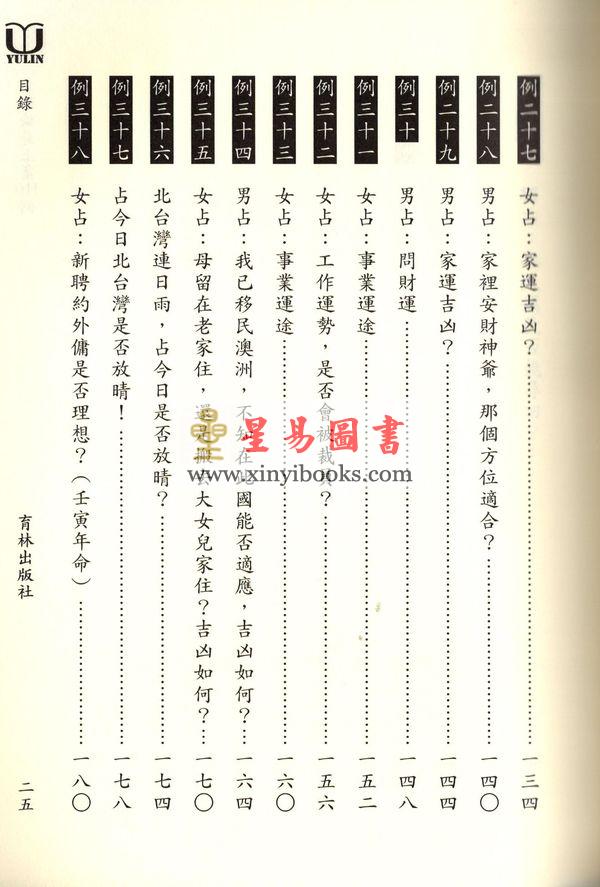 YULIN
目錄
例二十七 女占：家運吉凶？……一三四
例二十八 男占：家裡安財神爺，那個方位適合？……一四〇
例二十九 男占：家運吉凶？……一四四
例三十 男占：問財運……一四八
例三十一 女占：事業運途……一五二
例三十二 女占：工作運勢，是否會被裁員？……一五六
例三十三 女占：事業運途……一六〇
例三十四 男占：我已移民澳洲，不知在此國能否適應，吉凶如何？……一六四
例三十五 女占：母留在老家住，還是搬去大女兒家住？吉凶如何？……一七〇
例三十六 北台灣連日雨，占今日是否放晴？……一七四
例三十七 占今日北台灣是否放晴！……一七八
例三十八 女占：新聘約外傭是否理想？（壬寅年命）……一八〇
育林出版社
二五
星易圖書
www.xinyibooks.com